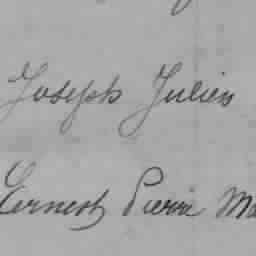 Joseph Julien
Ernest Pierre Ma